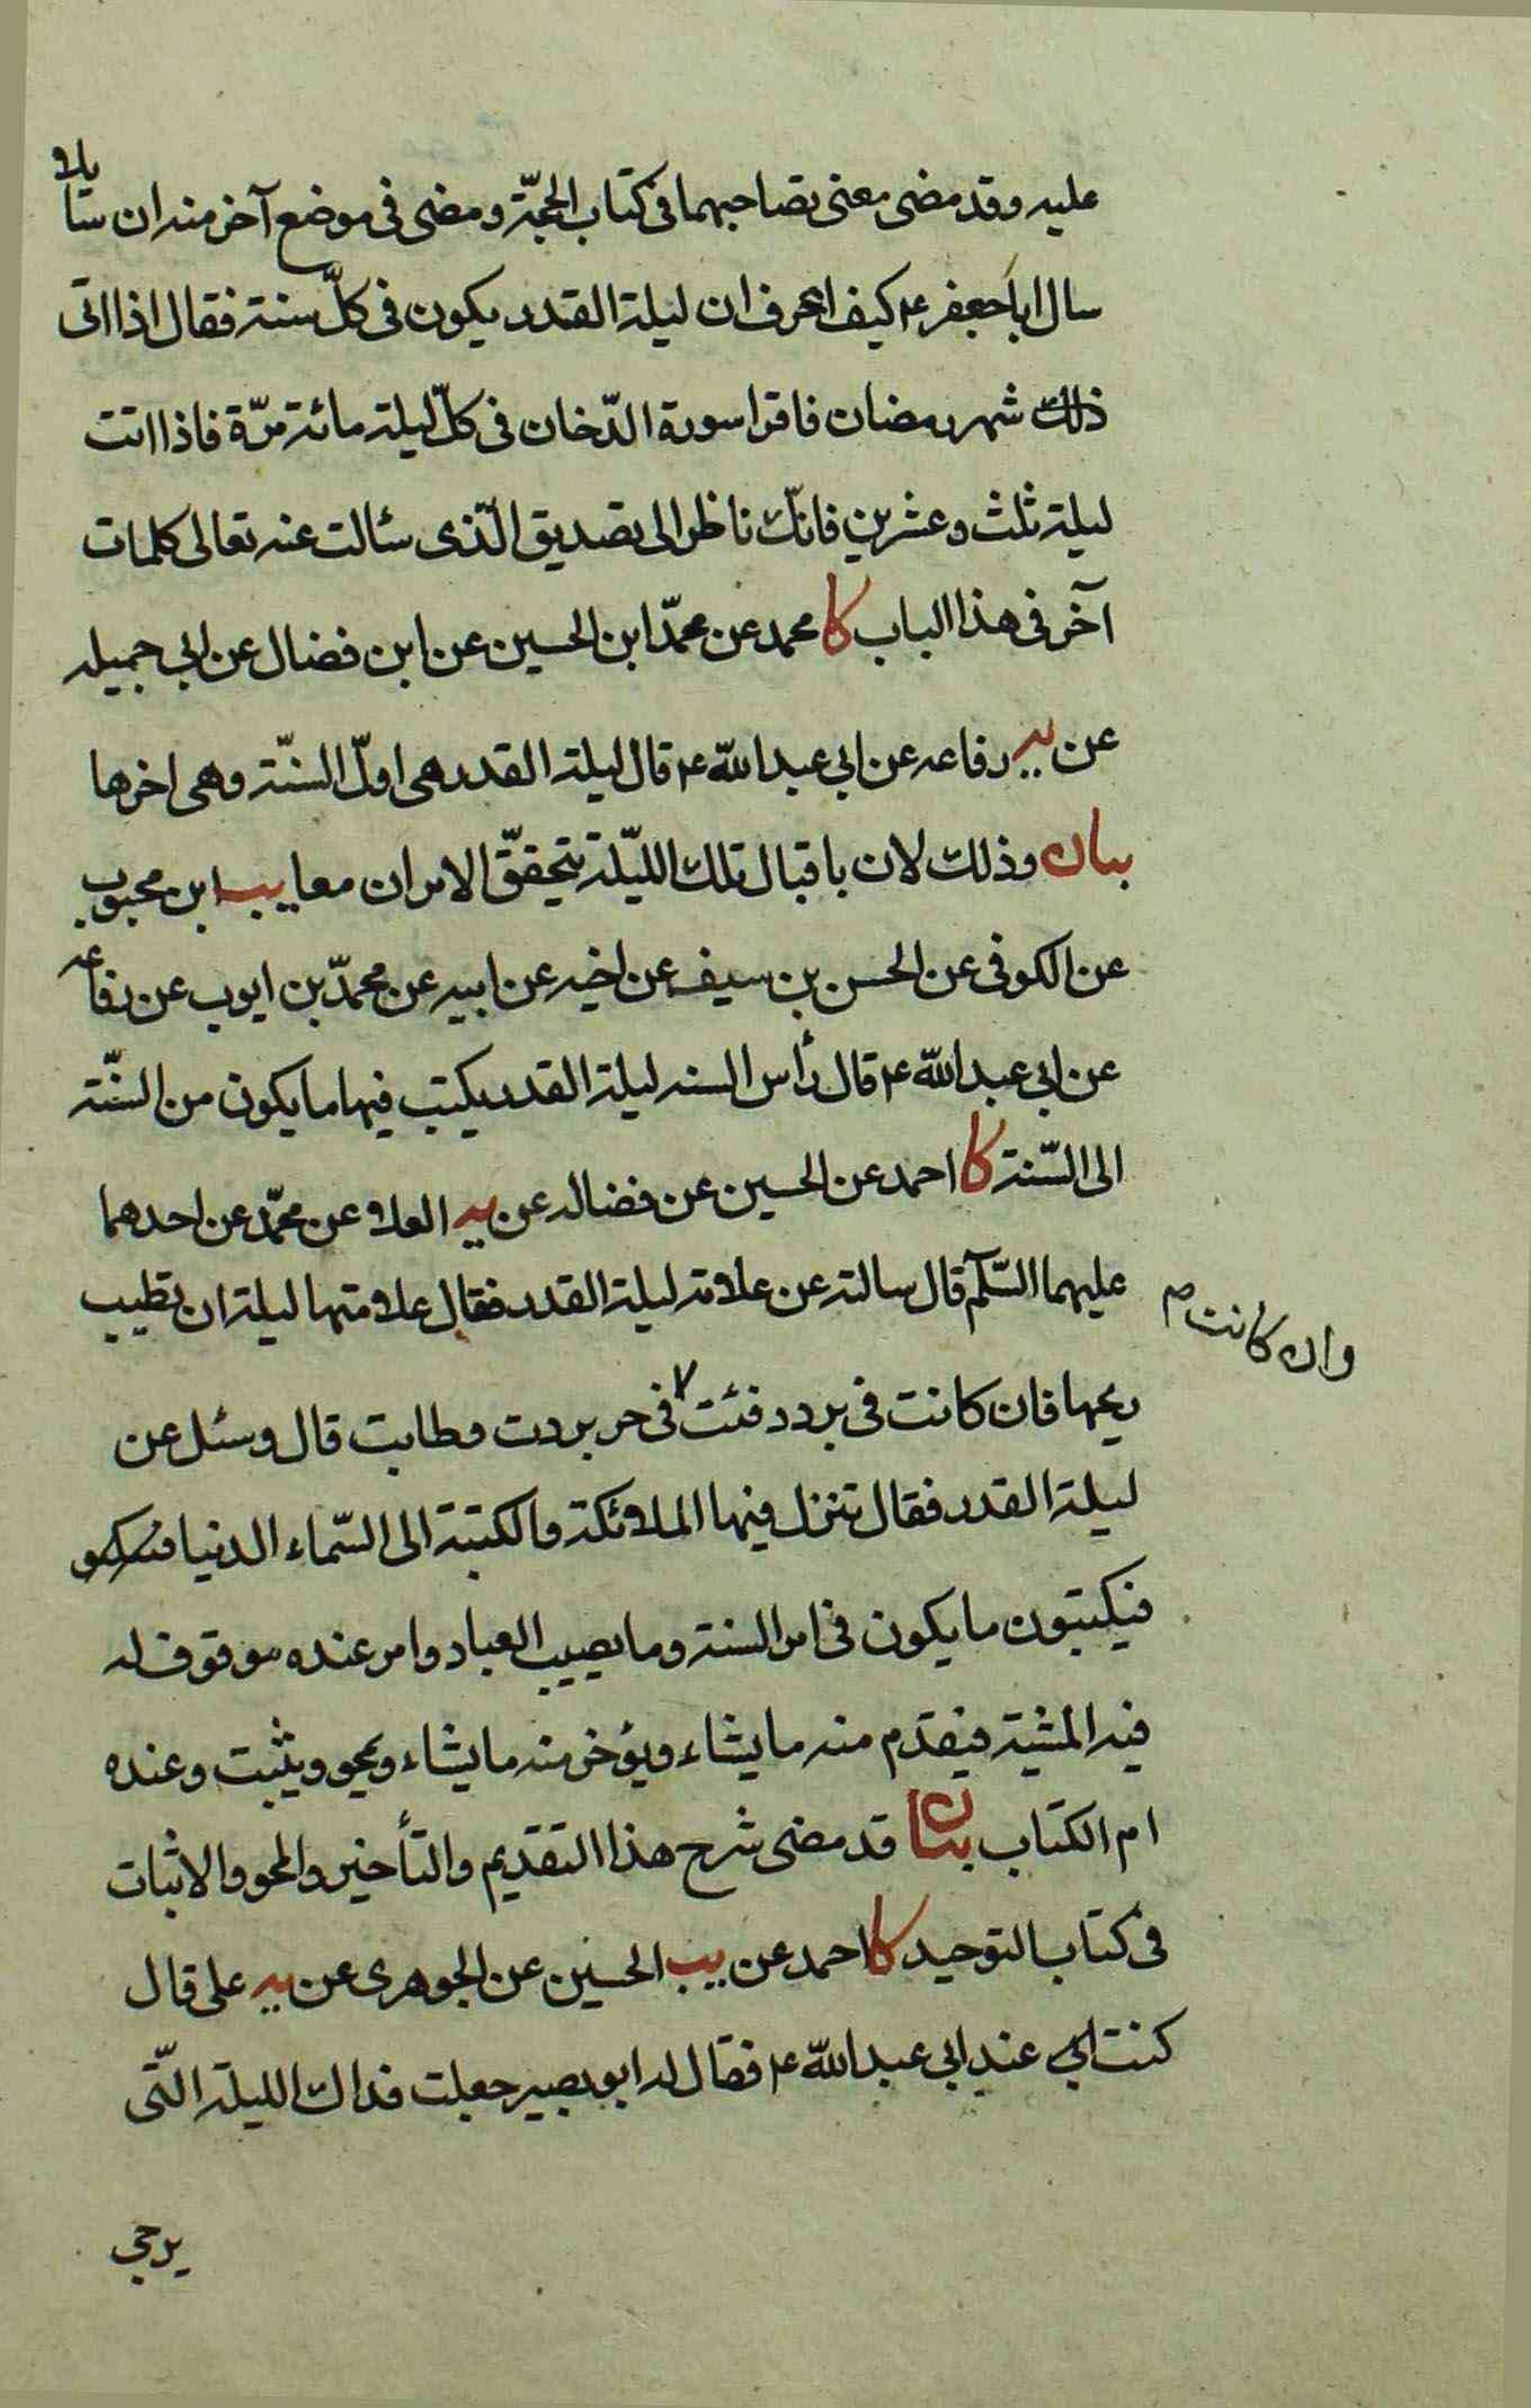 عليه وقد مضى معنى تصاحبهما فى كتاب الحجّة ومضى فى موضع آخر منه ان سائلا
سال اباجعفر ع كيف اعرف ان ليلة القدر يكون فى كلّ سنة فقال اذا اتى
ذلك شهر رمضان فاقرا سورة الدّخان فى كلّ ليلة مائة مرّة فاذا اتت
ليلة ثلث وعشرين فانّك ناظر الى تصديق الّذى سئالت عنه تعالى كلمات
آخر فى هذا الباب كا محمد عن محمّد ابن الحسين عن ابن فضال عن ابى جميله
عن يه رفاعه عن ابي عبد الله ع قال ليلة القدر هى اولّ السنّة وهى اخرها
بيان وذلك لان باقبال تلك الليّلة يتحققّ الامران معا يب ابن محبوب
عن الكوفى عن الحسن بن سيف عن اخيه عن ابيه عن محمّد بن ايوب عن رفاعه
عن ابي عبد الله ع قال رأس السنه ليلة القدر يكتب فيها ما يكون من السنّة
الى السّنة كا احمد عن الحسين عن فضاله عن يه العلاء عن محمّد عن احدهما
عليهما السّلم قال سالته عن علامة ليلة القدر فقال علامتها ليلة ان تطيب
وان كانت م
ريحها فان كانت فى برد دفئت فى حر بردت وطابت قال وسئل عن
ليلة القدر فقال تنزل فيها الملائكة والكتبة الى السّماء الدنيا
فيكتبون ما يكون فى امر السنة وما يصيب العباد وامر عنده موقوف له
فيه المشية فيقدّم منه ما يشاء ويؤخر منه ما يشاء ويمحو ويثبت وعنده
ام الكتاب بيان قد مضى شرح هذا التقديم والتأخير والمحو والاثبات
فى كتاب التوحيد كا احمد عن يب الحسين عن الجوهرى عن يه على قال
كنت عند ابي عبد الله ع فقال له ابو بصير جعلت فداك الليلة التّى
يرجى